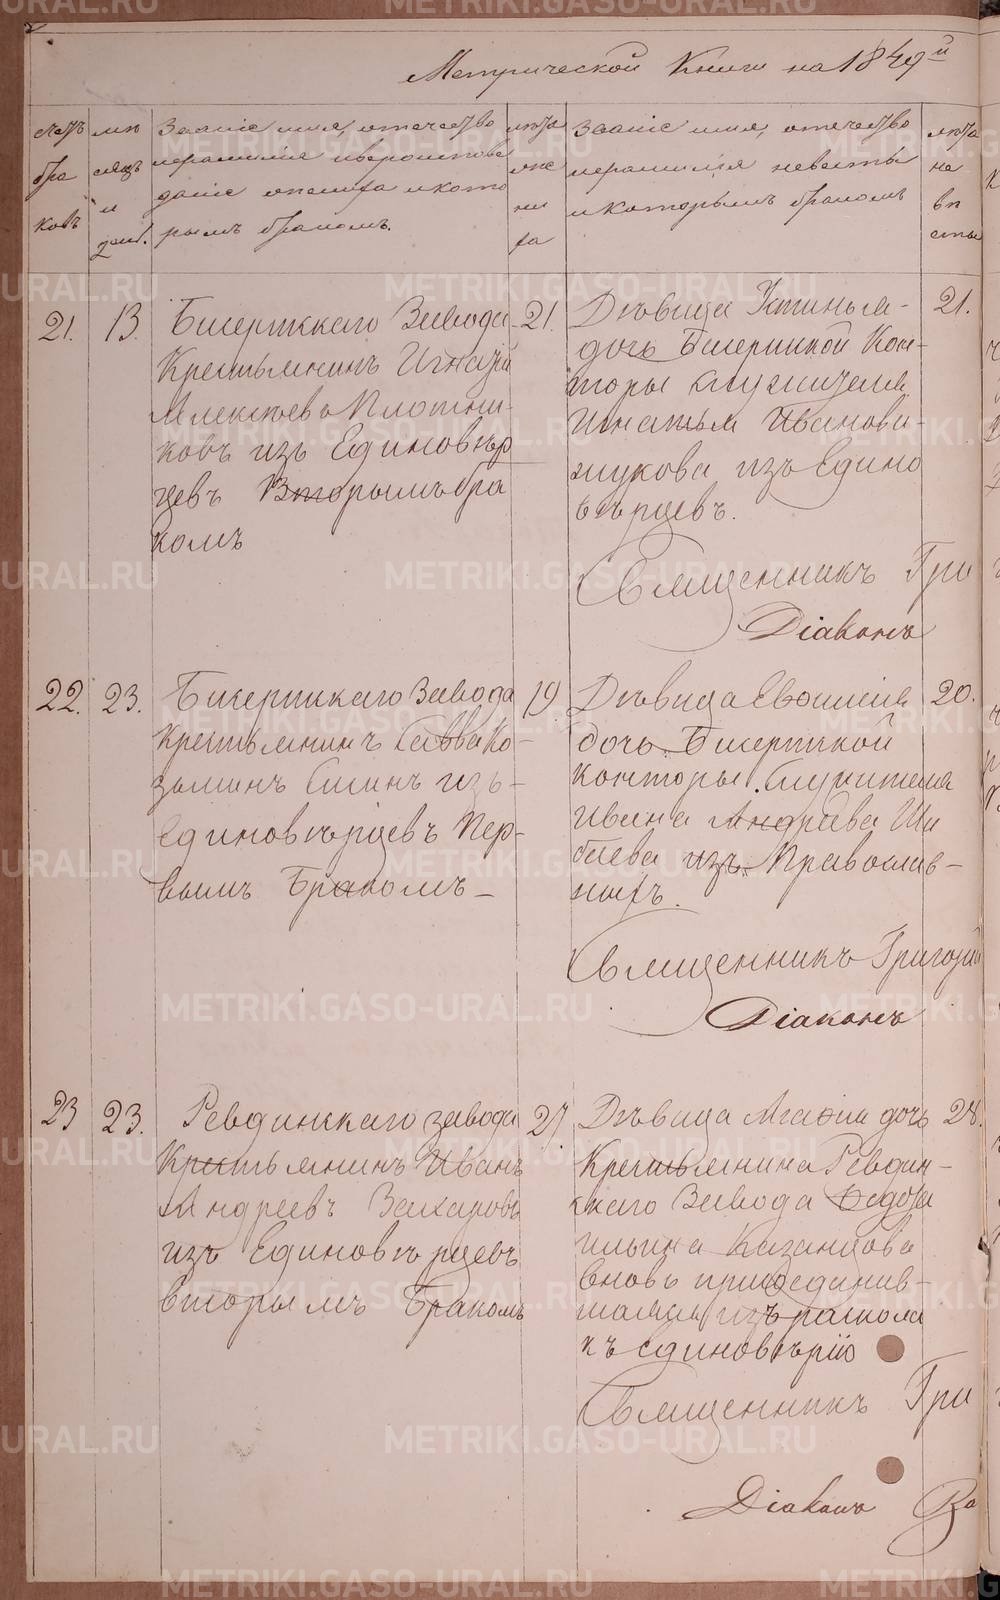 Метрической Книги на 1849й
Счетъ браковъ
мѣсяцъ и день.
Званіе имя, отечество
и фамилія и вероиспове
даніе жениха и кото
рымъ бракомъ.
лѣта жениха
Званіе имя, отечество
и фамилія невесты
и Которымъ бракомъ
лѣта невесты
21.
13.
Бисертскаго Завода
Крестьянинъ Игнатій
Алексѣевъ Плотни-
ковъ изъ Единовѣр
цевъ Вторымъ бра
комъ
21.
Дѣвица Устинья-
дочь Бисертской Кон-
торы служителя
Игнатья Иванова-
жукова изъ Едино
вѣрцевъ.
21.
Священникъ Гри
Діаконъ
22.
23.
Бисертскаго Завода
крестьянинъ Савва Ко-
зьминъ изъ-
Единовѣрцевъ Пер-
вымъ Бракомъ-
19
Дѣвица
дочь Бисертской
конторы Служителя
Ивана Андрѣева
изъ Православ-
ныхъ.
20.
Священникъ Григорій
Діаконъ
23
23.
Ревдинскаго завода
Крестьянинъ Иванъ
Андреевъ Захаровъ
изъ Единовѣрцевъ
вторымъ Бракомъ
27
Дѣвица Агафья дочь
Крестьянина Ревдин-
скаго Завода Федота
Ильина Казанцова
вновь присоединив-
шаяся изъ раскола
къ единовѣрію
28.
Священникъ Гри
Діаконъ